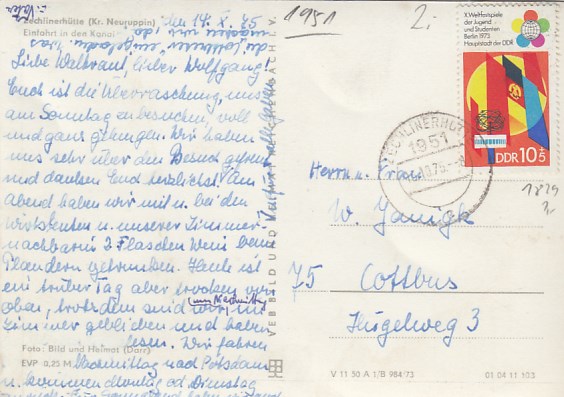 Zechlinerhütte (Kr. Neuruppin)
Einfahrt in den Kanal
den 14. X. 75
Liebe Waltraut, lieber Wolfgang!
Euch ist die Überraschung, uns
am Sonntag zu besuchen, voll
und ganz gelungen. Wir haben
uns sehr über den Besuch gefreut
und danken Euch herzlichst. Am
Abend haben wir mit u. bei den
Wirtsleuten u. unserer Zimmer-
nachbarin 3 Flaschen Wein beim
Plaudern getrunken. Heute ist
ein trüber Tag aber trocken von
oben, trotzdem sind wir im
(am Nachmittag)
Zimmer geblieben und haben
lesen. Wir fahren
Foto: Bild und Heimat (Darr)
EVP 0,25 M
Nachmittag nach Potsdam
u. kommen Montag od. Dienstag
VEB BILD UND HEIMAT REICHENBACH I. V.
1951
2,-
X. Weltfestspiele
der Jugend
und Studenten
Berlin 1973
Hauptstadt der DDR
DDR 10+5
ZECHLINERHÜTTE
1951
1829
Herrn u. Frau
W. Janigk
75 Cottbus
Hügelweg 3
V 11 50 A 1/B 984/73
01 04 11 503